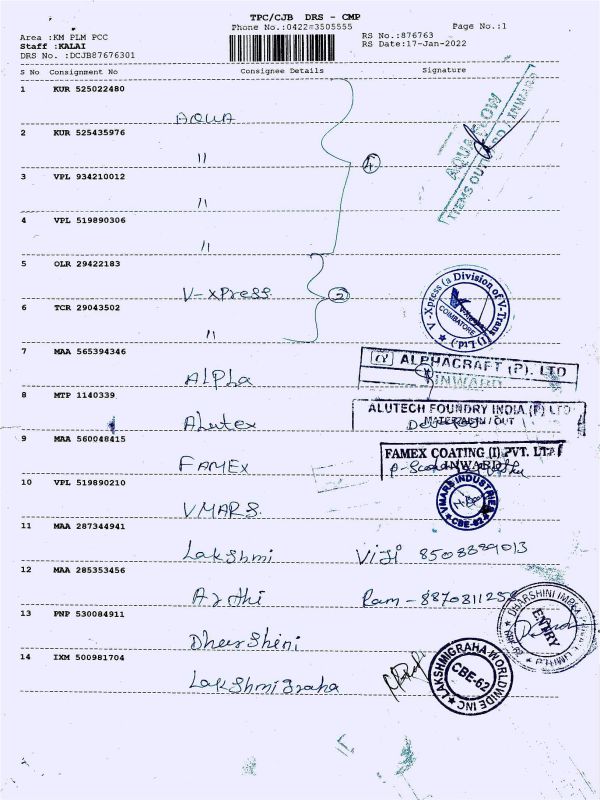 TPC/CJB DRS - CMP
Phone No.:0422=3505555 Page No.:1
Area :KM PLM PCC RS No.:876763
Staff :KALAI RS Date:17-Jan-2022
DRS No. :DCJB87676301
S No Consignment No Consignee Details Signature
1 KUR 525022480
AQUA
2 KUR 525435976
11
4
3 VPL 934210012
11
4 VPL 519890306
11
AQUA FLOW
ITEMS OUTWARD / INWARD
5 OLR 29422183
V-XPress
2
6 TCR 29043502
11
V-Xpress (a Division of V-Trans (I) Ltd.)
COIMBATORE
7 MAA 565394346
ALPha
ALPHACRAFT (P). LTD
INWARD
8 MTP 1140339
ALutex
ALUTECH FOUNDRY INDIA (P) LTD
MATERIAL IN / OUT
9 MAA 560048415
FAMEX
FAMEX COATING (I) PVT. LTD
INWARD
10 VPL 519890210
VMARS
VMARS INDUSTRIES
CBE-62
11 MAA 287344941
Lakshmi Viji
12 MAA 285353456
Ardhi Ram - 8870811258
13 PNP 530084911
Dharshini
DHARSHINI
ENTRY
14 IXM 500981704
Lakshmigraha
LAKSHMIGRAHA WORLDWIDE INC
CBE-62